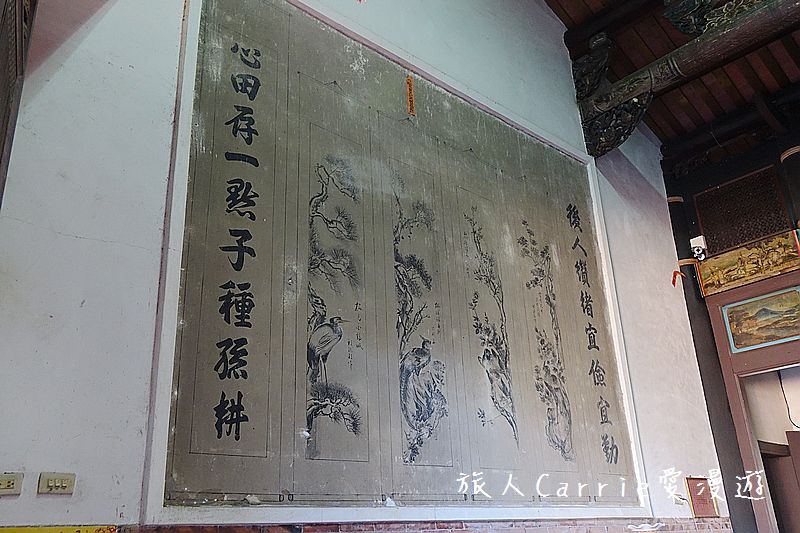 後人纘緒宜儉宜勤
心田存一點子種孫耕
旅人Carrie愛漫遊